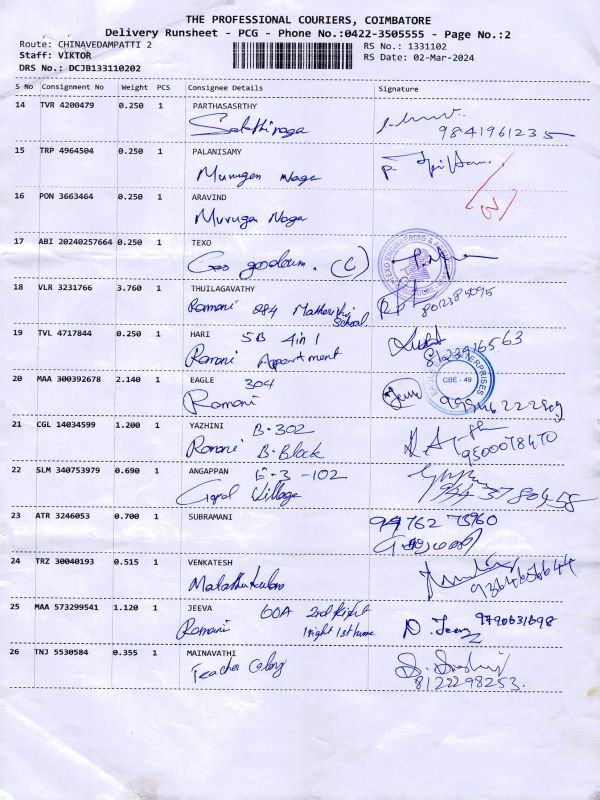 THE PROFESSIONAL COURIERS, COIMBATORE
Delivery Runsheet - PCG - Phone No.:0422-3505555 - Page No.:2
Route: CHINAVEDAMPATTI 2 RS No.: 1331102
Staff: VIKTOR RS Date: 02-Mar-2024
DRS No.: DCJB133110202
S No Consignment No Weight PCS Consignee Details Signature
14 TVR 4200479 0.250 1 PARTHASASRTHY
9841961235
15 TRP 4964504 0.250 1 PALANISAMY
Murugan Naga
16 PON 3663464 0.250 1 ARAVIND
Muruga Naga
17 ABI 20240257664 0.250 1 TEXO
Gas goodown. (C)
18 VLR 3231766 3.760 1 THUILAGAVATHY
Ramani 284
School
19 TVL 4717844 0.250 1 HARI 5B 4in1
Ramani Appartment
20 MAA 300392678 2.140 1 EAGLE 304
Ramani
CBE - 49
21 CGL 14034599 1.200 1 YAZHINI B-302
Ramani B-Block 9500078470
22 SLM 340753979 0.690 1 ANGAPPAN E-3-102
Gopal Village
23 ATR 3246053 0.700 1 SUBRAMANI
24 TRZ 30040193 0.515 1 VENKATESH
25 MAA 573299541 1.120 1 JEEVA 60A 2nd Right
Ramani 1right 1st home 9790631698
26 TNJ 5530584 0.355 1 MAINAVATHI
Teacher Colony
8122298253.